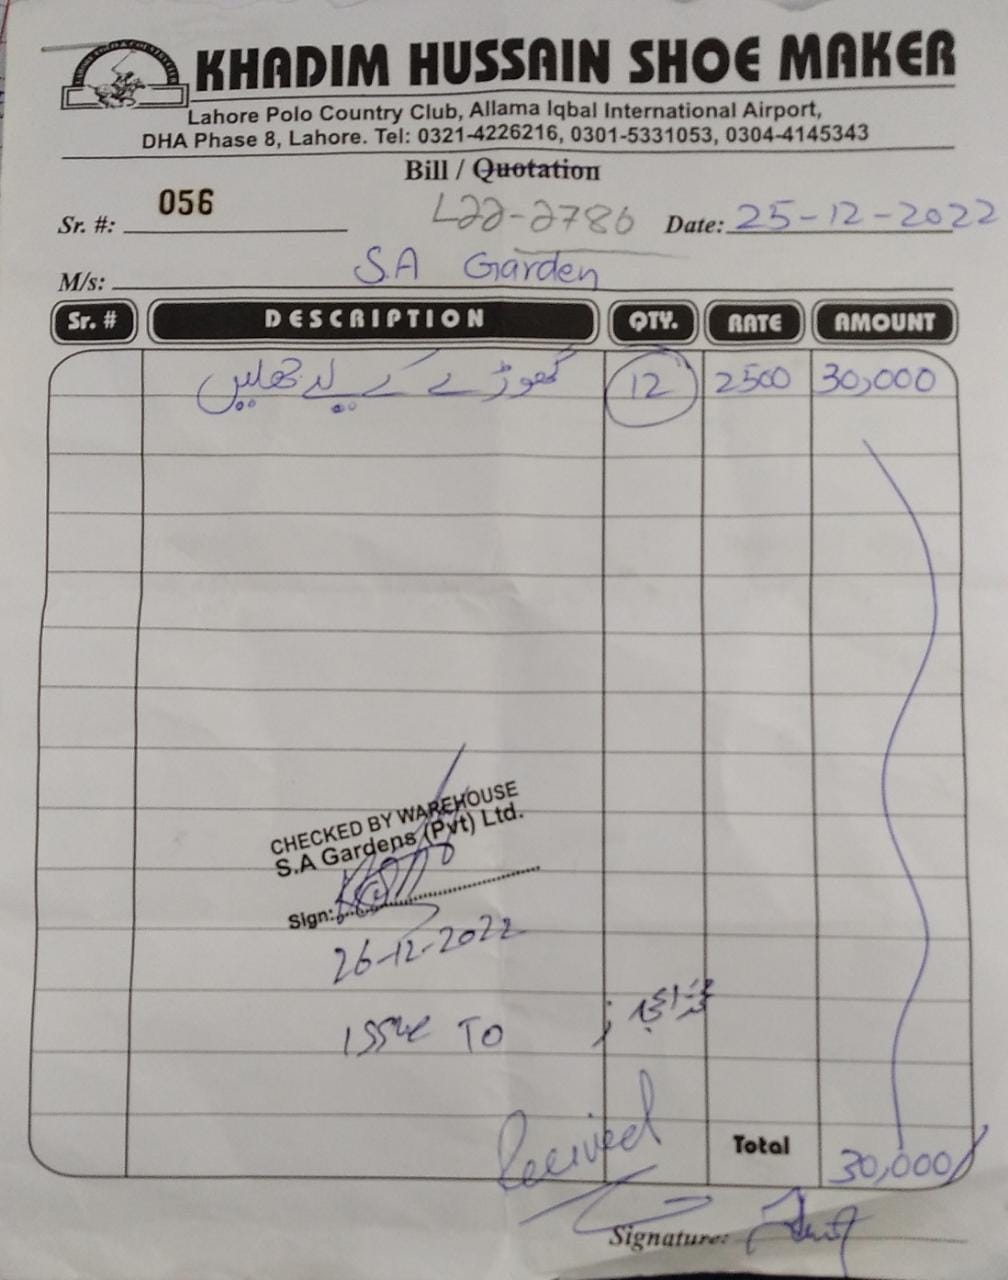 KHADIM HUSSAIN SHOE MAKER
Lahore Polo Country Club, Allama Iqbal International Airport,
DHA Phase 8, Lahore. Tel: 0321-4226216, 0301-5331053, 0304-4145343
Bill / Quotation
Sr. #: 056 L22-2786 Date: 25-12-2022
M/s: S.A Garden
Sr. # DESCRIPTION QTY. RATE AMOUNT
گھوڑے کے لیے 12 2500 30,000
CHECKED BY WAREHOUSE
S.A Gardens (Pvt) Ltd.
Sign:
26-12-2022
Issue To
Recived
Total 30,000/
Signature: